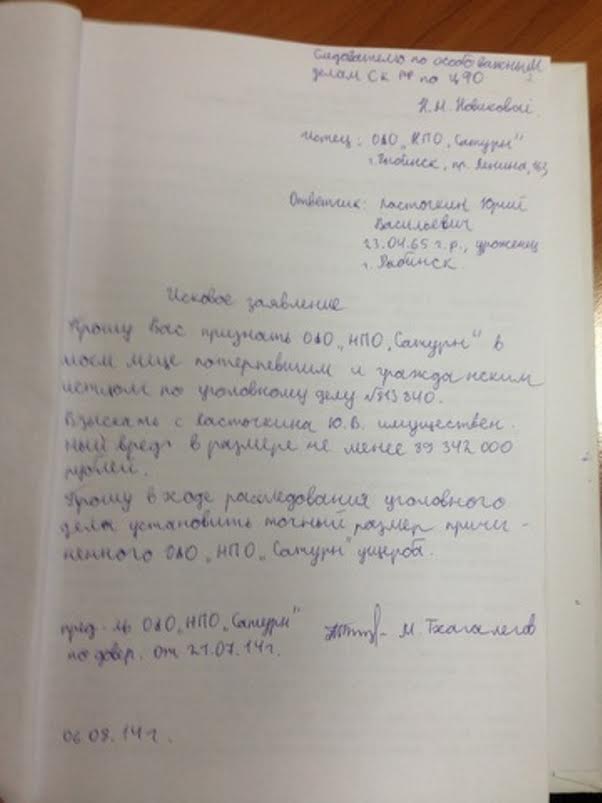 Следователю по особо важным
делам СК РФ по ЦФО
Н.Н. Новиковой.
Истец: ОАО „НПО „Сатурн"
г. Рыбинск, пр. Ленина, 163
Ответчик: Ласточкин Юрий
Васильевич
23.04.65 г.р., уроженец
г. Рыбинск.
Исковое заявление
Прошу Вас признать ОАО „НПО „Сатурн" в
моем лице потерпевшим и гражданским
истцом по уголовному делу №
Взыскать с Ласточкина Ю.В. имуществен
ный вред в размере не менее 89 342 000
рублей.
Прошу в ходе расследования уголовного
дела установить точный размер причи-
ненного ОАО „НПО „Сатурн" ущерба.
пред-ль ОАО „НПО „Сатурн"
М. Тхагалегов
по довер. от 21.07.14 г.
06.08.14 г.